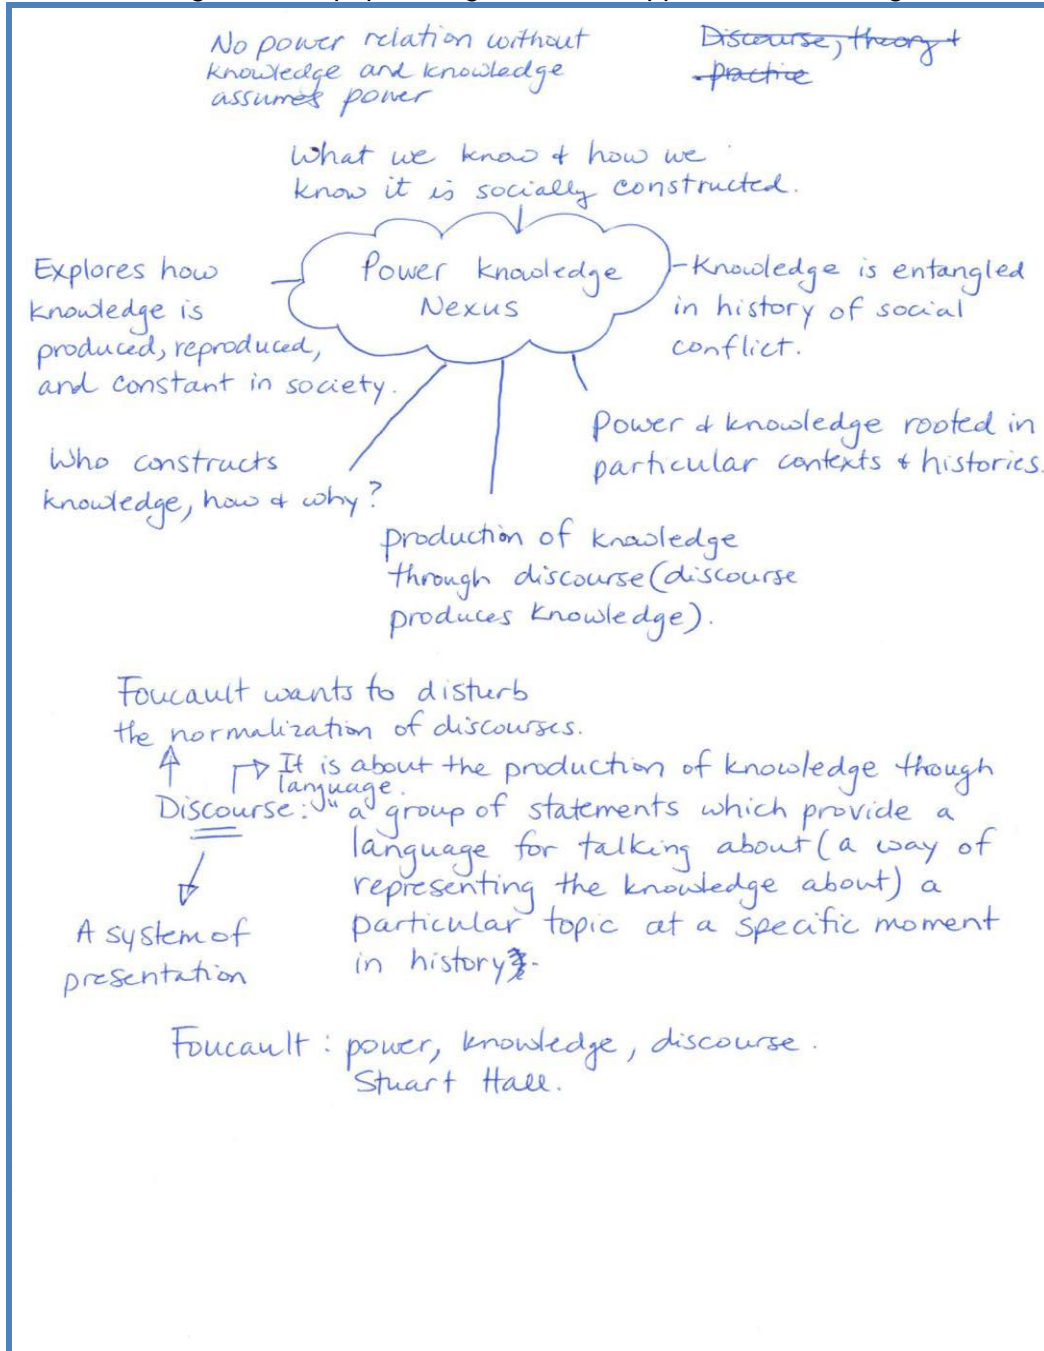 No power relation without
knowledge and knowledge
assumes power
Discourse, theory +
practice
What we know + how we
know it is socially constructed.
Power knowledge
Nexus
Explores how
knowledge is
produced, reproduced,
and constant in society.
Knowledge is entangled
in history of social
conflict.
Power + knowledge rooted in
particular contexts + histories.
Who constructs
knowledge, how + why?
production of knowledge
through discourse (discourse
produces knowledge).
Foucault wants to disturb
the normalization of discourses.
It is about the production of knowledge though
language.
Discourse: "a group of statements which provide a
language for talking about (a way of
representing the knowledge about) a
particular topic at a specific moment
in history
A system of
presentation
Foucault: power, knowledge, discourse.
Stuart Hall.